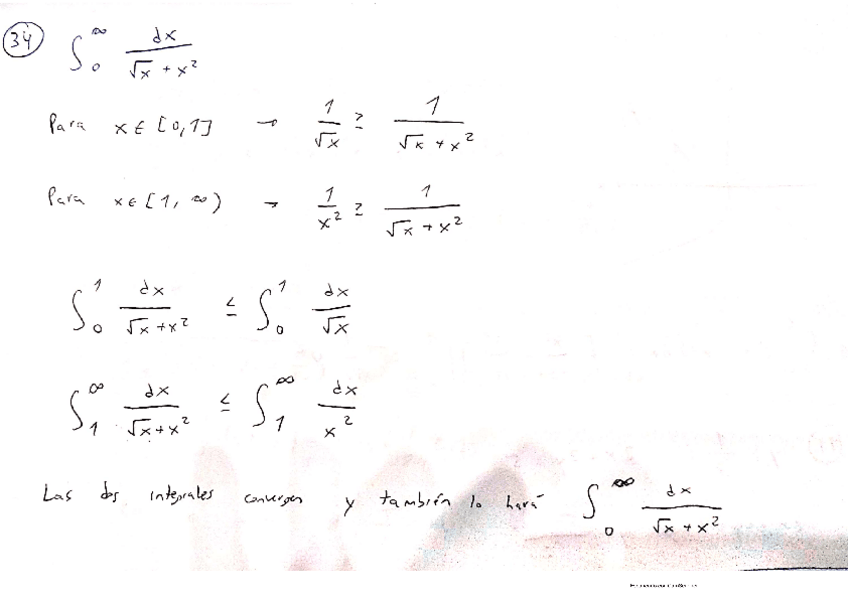 34 ∫₀^∞ dx/(√x + x²)
Para x ∈ [0,1] → 1/√x ≥ 1/(√x + x²)
Para x ∈ [1, ∞) → 1/x² ≥ 1/(√x + x²)
∫₀¹ dx/(√x + x²) ≤ ∫₀¹ dx/√x
∫₁^∞ dx/(√x + x²) ≤ ∫₁^∞ dx/x²
Las dos integrales convergen y también lo hará ∫₀^∞ dx/(√x + x²)